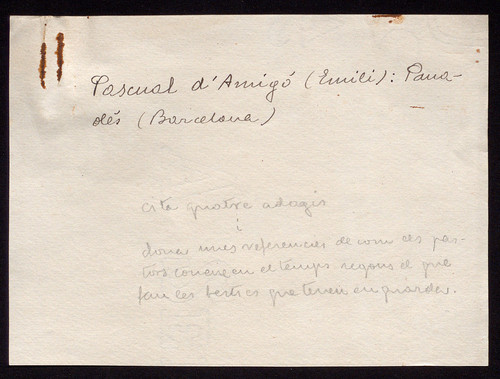 Pascual d'Amigó (Emili): Pana-
dés (Barcelona)
cita quatre adagis
i
dona unes referencies de com els pas-
tors coneixen el temps segons el que
fan les besties que tenen en guarda.